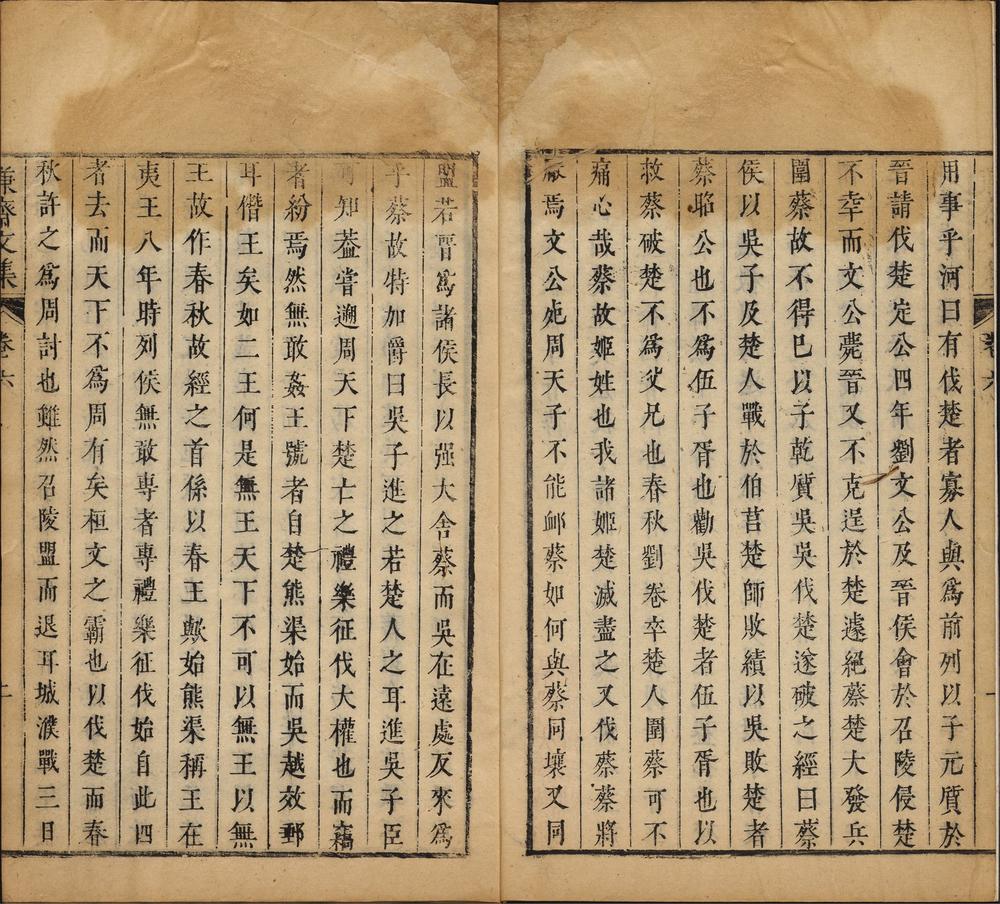 用事乎河曰有伐楚者寡人與爲前列以子元質於
晉請伐楚定公四年劉文公及晉侯會於召陵侵楚
不幸而文公薨晉又不克逞於楚遽絕蔡楚大發兵
圍蔡故不得已以子乾質吳吳伐楚遂破之經曰蔡
侯以吳子及楚人戰於伯莒楚師敗績以吳敗楚者
蔡昭公也不爲伍子胥也勸吳伐楚者伍子胥也以
救蔡破楚不爲父兄也春秋劉卷卒楚人圍蔡可不
痛心哉蔡故姬姓也我諸姬楚滅盡之又伐蔡蔡將
焉文公死周天子不能䘏蔡如何與蔡同壤又同
盟若晉爲諸侯長以强大舍蔡而吳在遠處反來爲
乎蔡故特加爵曰吳子進之若楚人之耳進吳子臣
知蓋嘗遡周天下楚亡之禮樂征伐大權也而竊
者紛焉然無敢姦王號者自楚熊渠始而吳越效郵
耳僭王矣如二王何是無王天下不可以無王以無
王故作春秋故經之首係以春王歟始熊渠稱王在
夷王八年時列侯無敢專者專禮樂征伐始自此四
者去而天下不爲周有矣桓文之霸也以伐楚而春
秋許之爲周討也雖然召陵盟而退耳城濮戰三日
齋文集 卷六